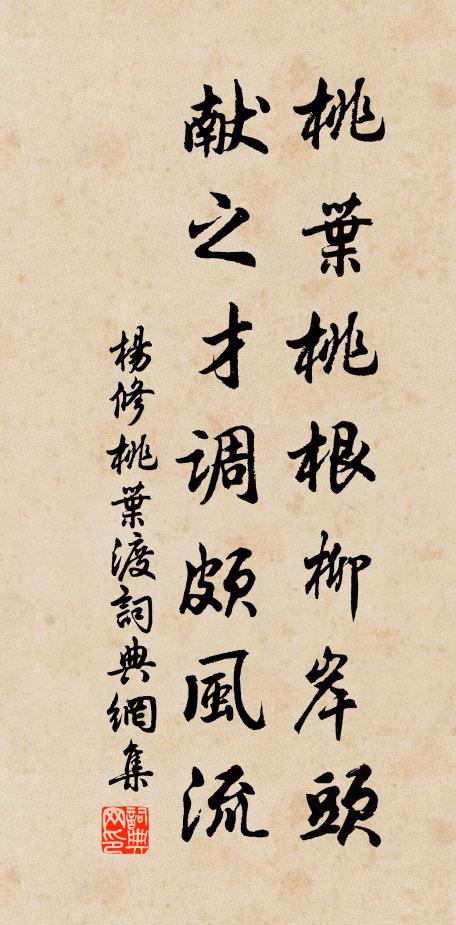 桃葉桃根柳岸頭
献之才調頗風流
楊修桃葉渡詞典網集
詞典網印